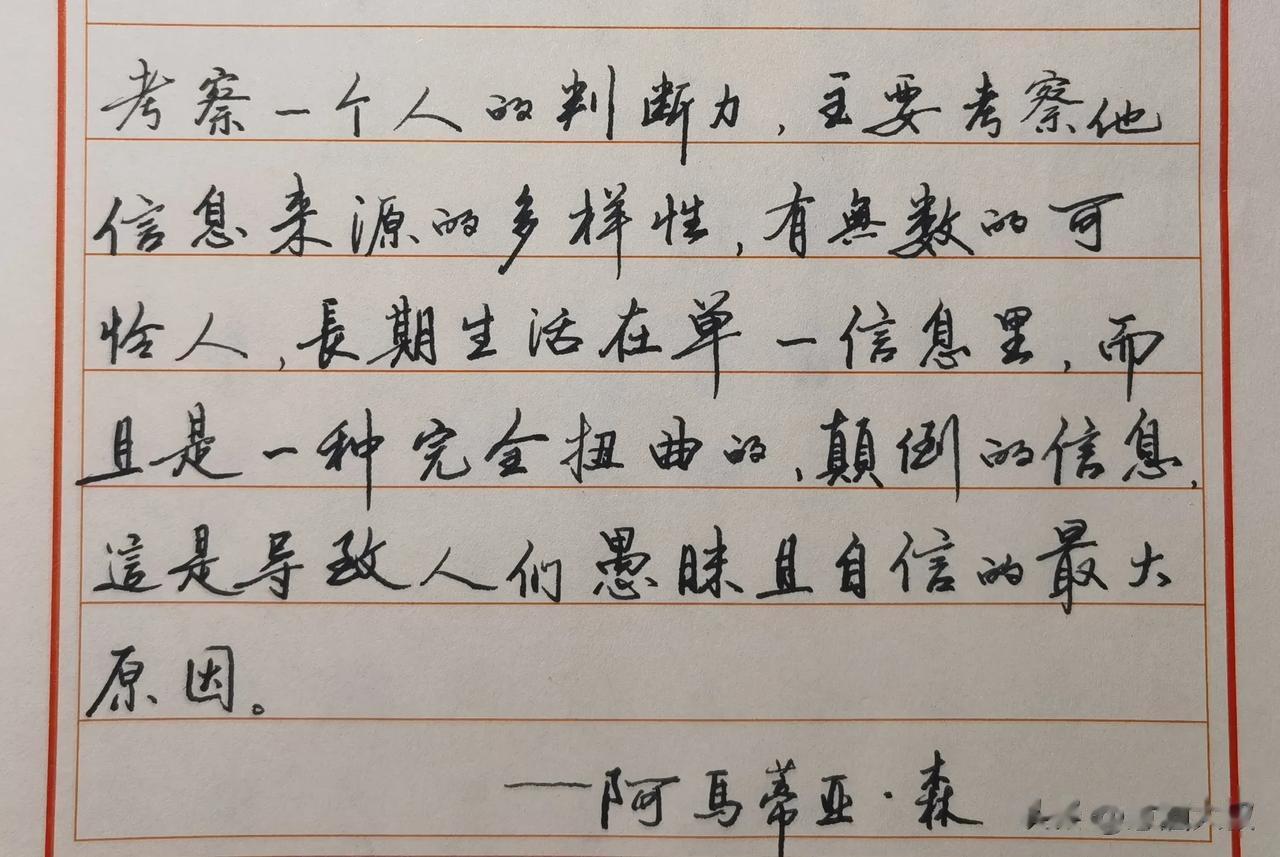 考察一个人的判断力,主要考察他
信息来源的多样性,有無数的可
怜人,長期生活在单一信息里,而
且是一种完全扭曲的,顛倒的信息,
這是导致人们愚昧且自信的最大
原因。
——阿马蒂亚·森